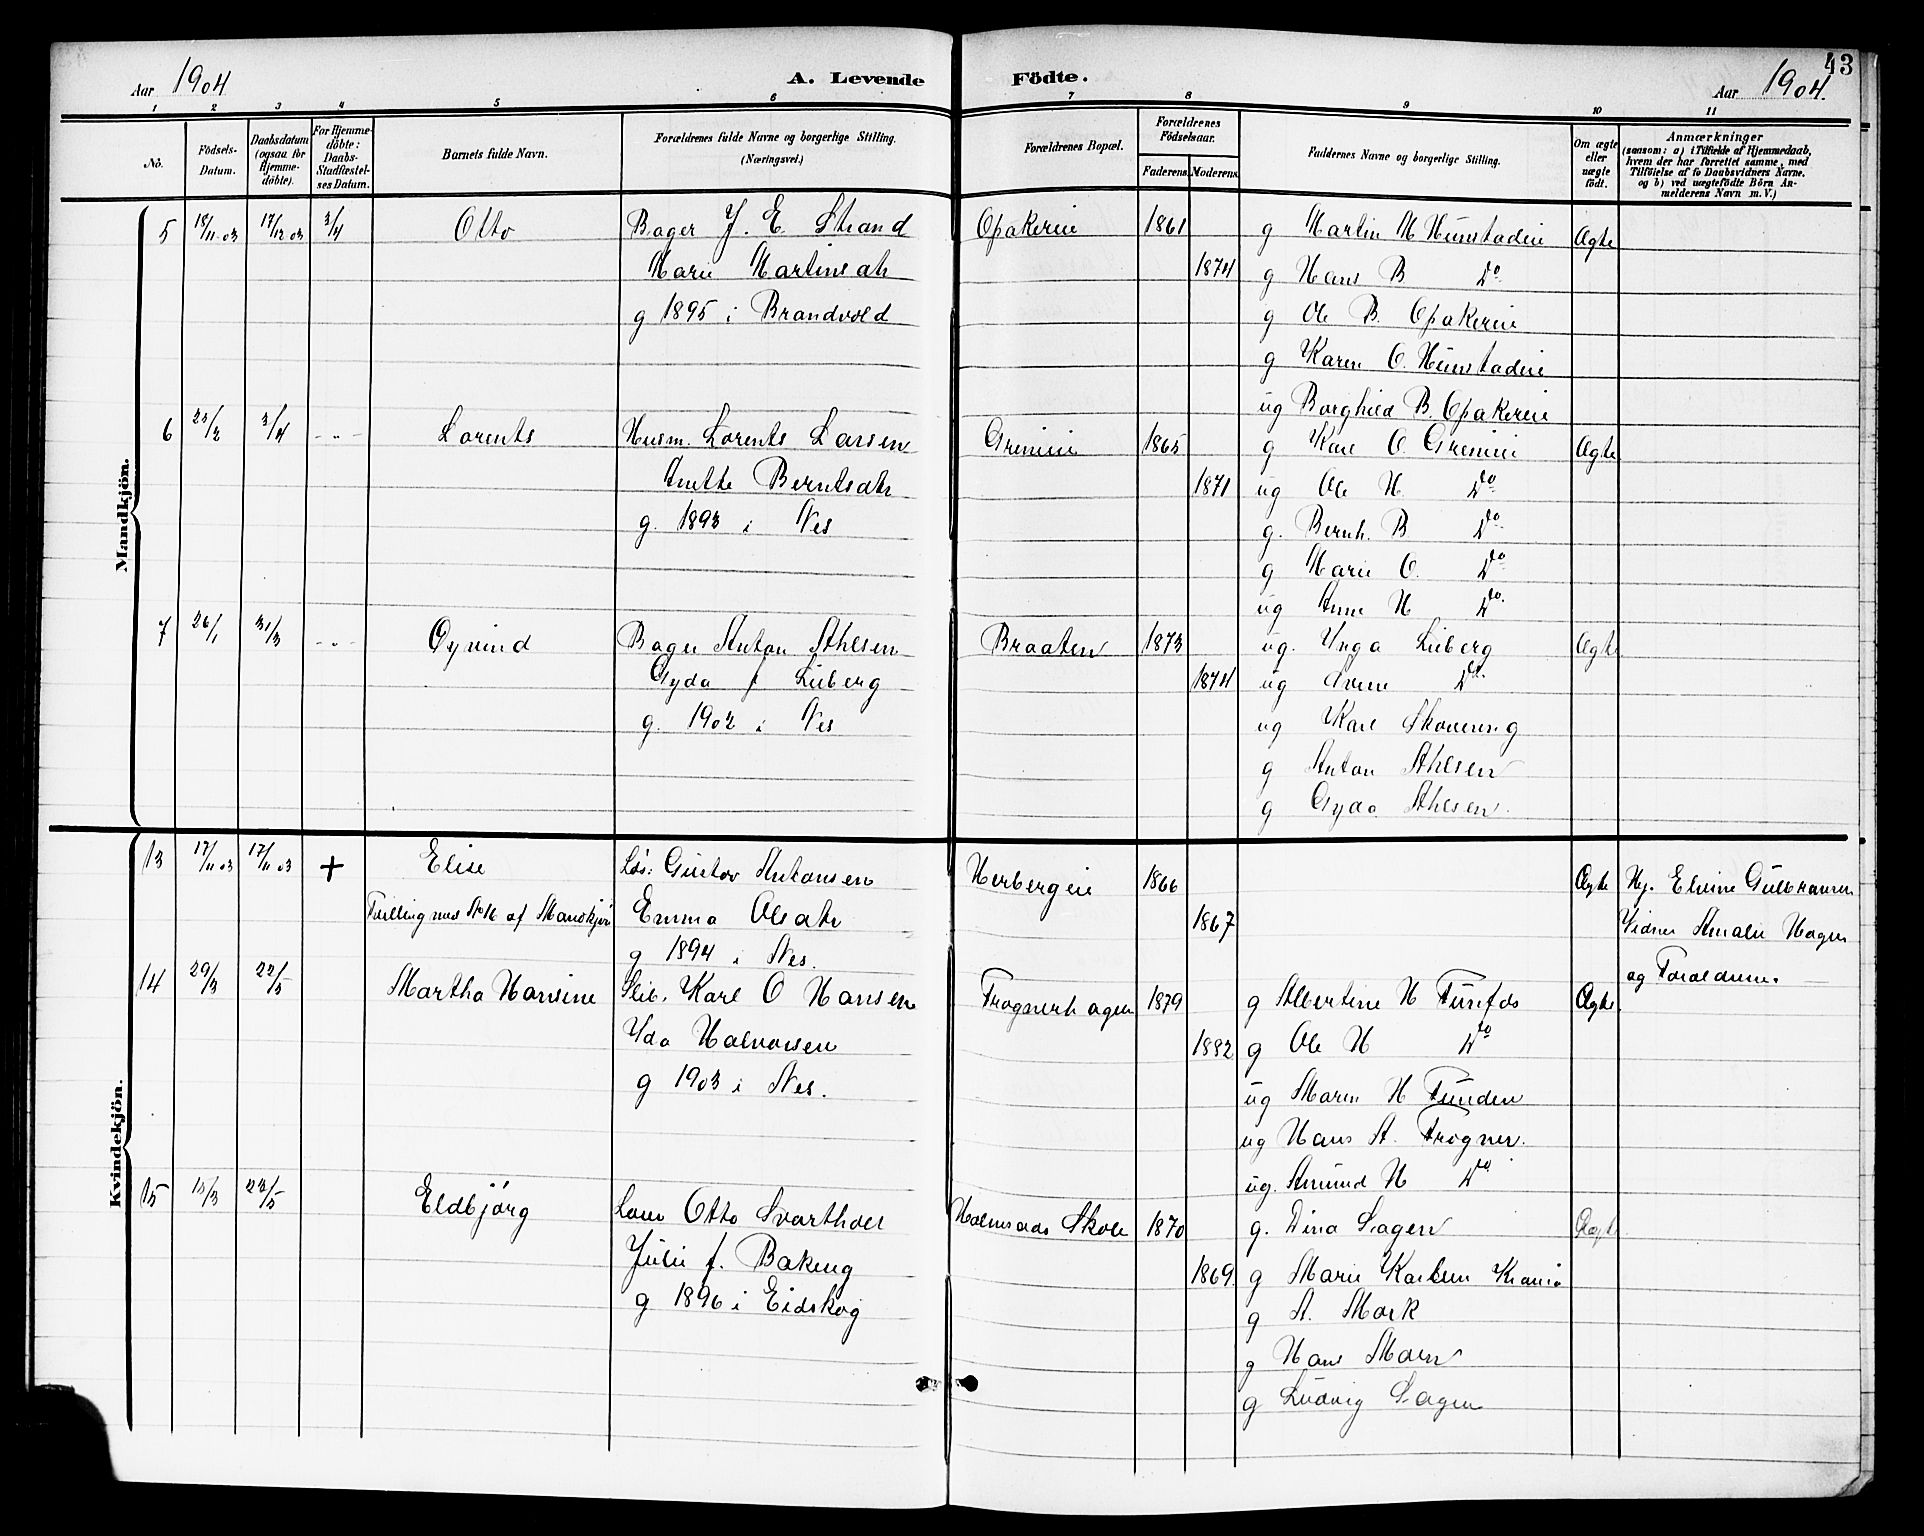 43
Aar 1904
A. Levende Födte.
Aar 1904.
1 2 3 4 5 6 7 8 9 10 11
No.
Födsels-Datum.
Daabsdatum (ogsaa for Hjemme-döbte).
For Hjemme-döbte: Daabs-Stadfæstel-ses Datum.
Barnets fulde Navn.
Forældrenes fulde Navne og borgerlige Stilling.
(Næringsvei.)
Forældrenes Bopæl.
Forældrenes Födselsaar.
Faderens. Moderens.
Faddernes Navne og borgerlige Stilling.
Om ægte eller uægte födt.
Anmærkninger
(saasom: a) i Tilfælde af Hjemmedaab,
hvem der har forrettet samme, med
Tilföielse af to Daabsvidners Navne.
og b) ved uægtefödte Börn An-
melderens Navn m. V.)
Mandkjön.
5 18/11 03 17/12 03 3/4 Otto Bager J. E. Strand Opakereie 1861 g Martin M Hunstadeie Ægte
Marie Martinsdtr 1874 g Hans B Do
g 1895 i Brandvold g Ole B. Opakereie
g Karen O. Hunstadeie
ug Borghild B. Opakereie
6 /2 3/4 - " - Lorents Husm. Lorents Larsen 1865 g Karl O. Ægte
Anette Berntsdtr 1871 ug Ole H Do
g. 1893 i Nes g. Bernh. B Do
g Marie O. Do
ug Anne H Do.
7 26/1 31/3 - " - Øyvind Bager Anton Ahlsen Braaten 1873 ug. Inga Lieberg Ægte
Gyda f Lieberg 1874 ug Do.
g. 1902 i Nes ug Karl Skovreng
g Anton Ahlsen
g Gyda Ahlsen.
Kvindekjön.
13 17/11 03 17/11 03 + Elise Løs: Gustav Antonsen Herbergeie 1866 Ægte Hj. Elvine Gulbransen
Tvilling med No 16 af Mandkjøn Emma Olsdtr 1867 Vidner Amalie Hagen
g 1894 i Nes. og Forældrene.
14 29/3 22/5 Martha Hansine Slib. Karl O Hansen Frognerhagen 1879 g Albertine H Ægte
Ida Halvorsen 1882 g Ole H Do
g 1903 i Nes. ug Maren H Funden
ug Hans A. Frogner.
ug. Amund H Do
15 15/3 22/5 Eldbjørg Otto Svartholt Skole 1870 g. Dina Sagen Ægte
Julie f. Bakeng 1869. g Marie Karlsen Krania
g 1896 i Eidskog g A. Mork
g Hans Moen
g Ludvig Sagen